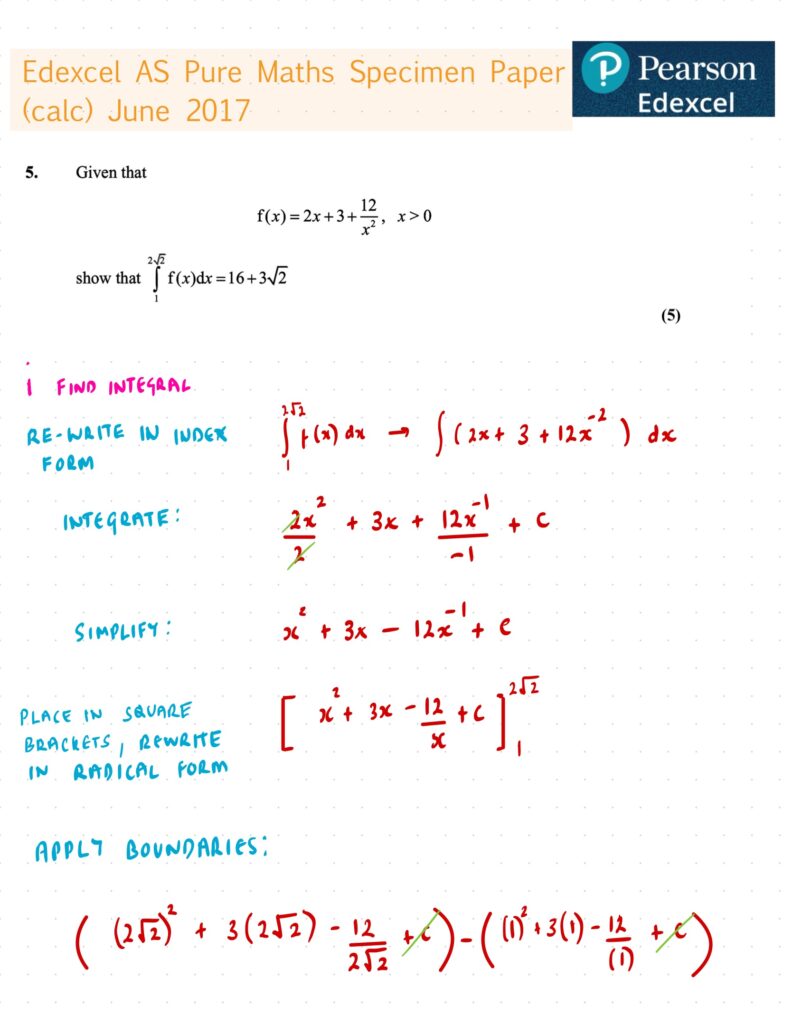 Edexcel AS Pure Maths Specimen Paper
(calc) June 2017
Pearson
Edexcel
5. Given that
f(x) = 2x + 3 + 12/x², x > 0
show that ∫₁^(2√2) f(x)dx = 16 + 3√2
(5)
1 FIND INTEGRAL
RE-WRITE IN INDEX
FORM
∫₁^(2√2) f(x) dx → ∫(2x + 3 + 12x⁻²) dx
INTEGRATE:
2x²/2 + 3x + 12x⁻¹/-1 + C
SIMPLIFY:
x² + 3x - 12x⁻¹ + C
PLACE IN SQUARE
BRACKETS, REWRITE
IN RADICAL FORM
[x² + 3x - 12/x + C]₁^(2√2)
APPLY BOUNDARIES:
((2√2)² + 3(2√2) - 12/2√2 + C) - ((1)² + 3(1) - 12/(1) + C)